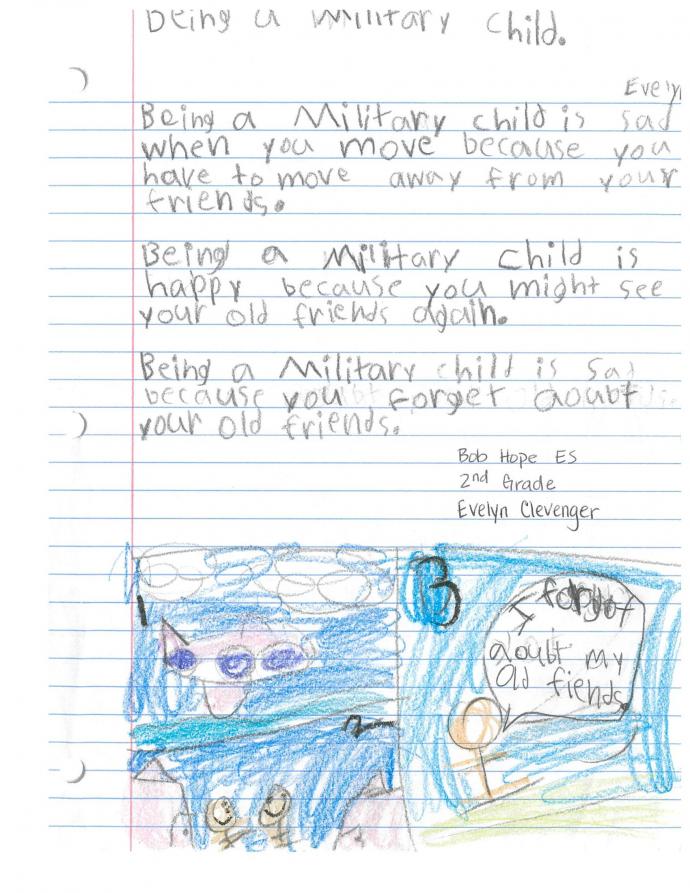 Being a Military child.
Evelyn
Being a Military child is sad
when you move because you
have to move away from your
friends.
Being a Military child is
happy because you might see
your old friends again.
Being a Military child is sad
because you forget aoubt
your old friends.
Bob Hope ES
2nd Grade
Evelyn Clevenger
1
3
I forgot
aoubt my
old fiends.
2